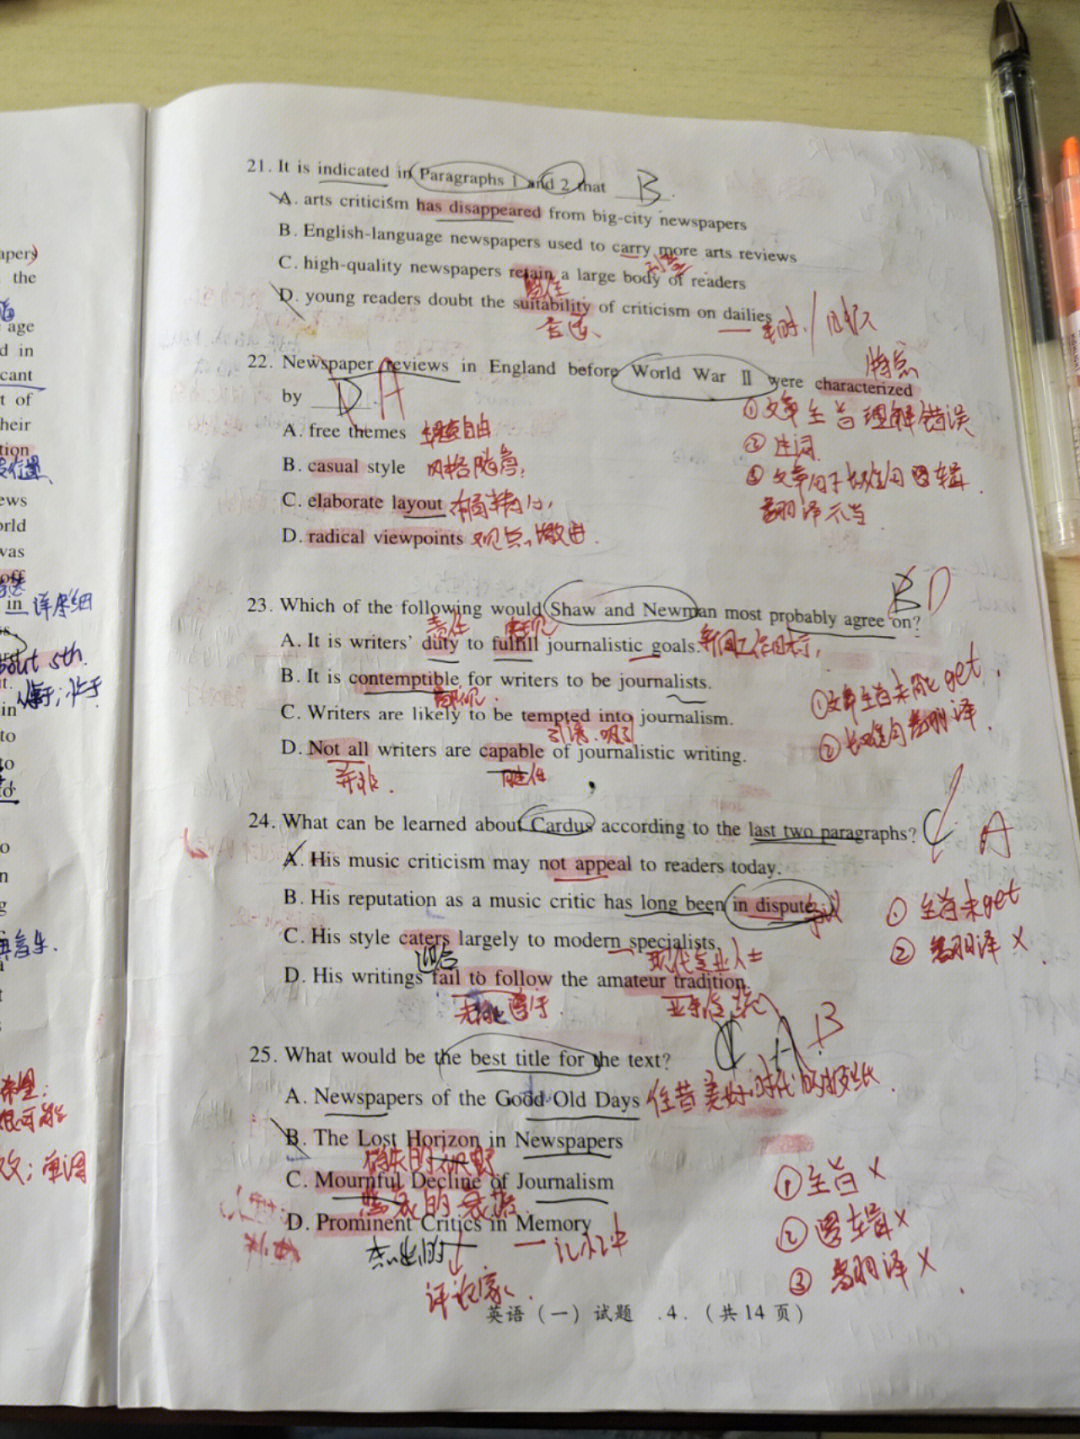 21. It is indicated in Paragraphs 1 and 2 that B.
A. arts criticism has disappeared from big-city newspapers
B. English-language newspapers used to carry more arts reviews
C. high-quality newspapers retain a large body of readers
D. young readers doubt the suitability of criticism on dailies
合适
22. Newspaper reviews in England before World War Ⅱ were characterized
特点
by D A
A. free themes 主题自由
B. casual style 风格随意
C. elaborate layout 布局
D. radical viewpoints 观点
①文章主旨理解错误
②生词
③文章句子长难句逻辑
翻译不当
23. Which of the following would Shaw and Newman most probably agree on?
B D
责任 实现
A. It is writers' duty to fulfill journalistic goals. 新闻工作目标
B. It is contemptible for writers to be journalists.
C. Writers are likely to be tempted into journalism.
引诱、吸引
D. Not all writers are capable of journalistic writing.
并非 胜任
①文章主旨未能get
②长难句翻译
24. What can be learned about Cardus according to the last two paragraphs? C A
A. His music criticism may not appeal to readers today.
B. His reputation as a music critic has long been in dispute.
C. His style caters largely to modern specialists.
迎合 现代专业人士
D. His writings fail to follow the amateur tradition.
无法遵守 业余传统
①主旨未get
②翻译 X
25. What would be the best title for the text? C A B
A. Newspapers of the Good Old Days 往昔美好时代的报纸
B. The Lost Horizon in Newspapers
消失的视野
C. Mournful Decline of Journalism
悲哀的衰落
D. Prominent Critics in Memory
杰出的 记忆中
评论家
①主旨 X
②逻辑 X
③翻译 X
英语(一)试题 .4.(共14页)
the
age
d in
cant
t of
heir
tion
ews
orld
was
off
in 详尽细
about 5th.
in
to
to